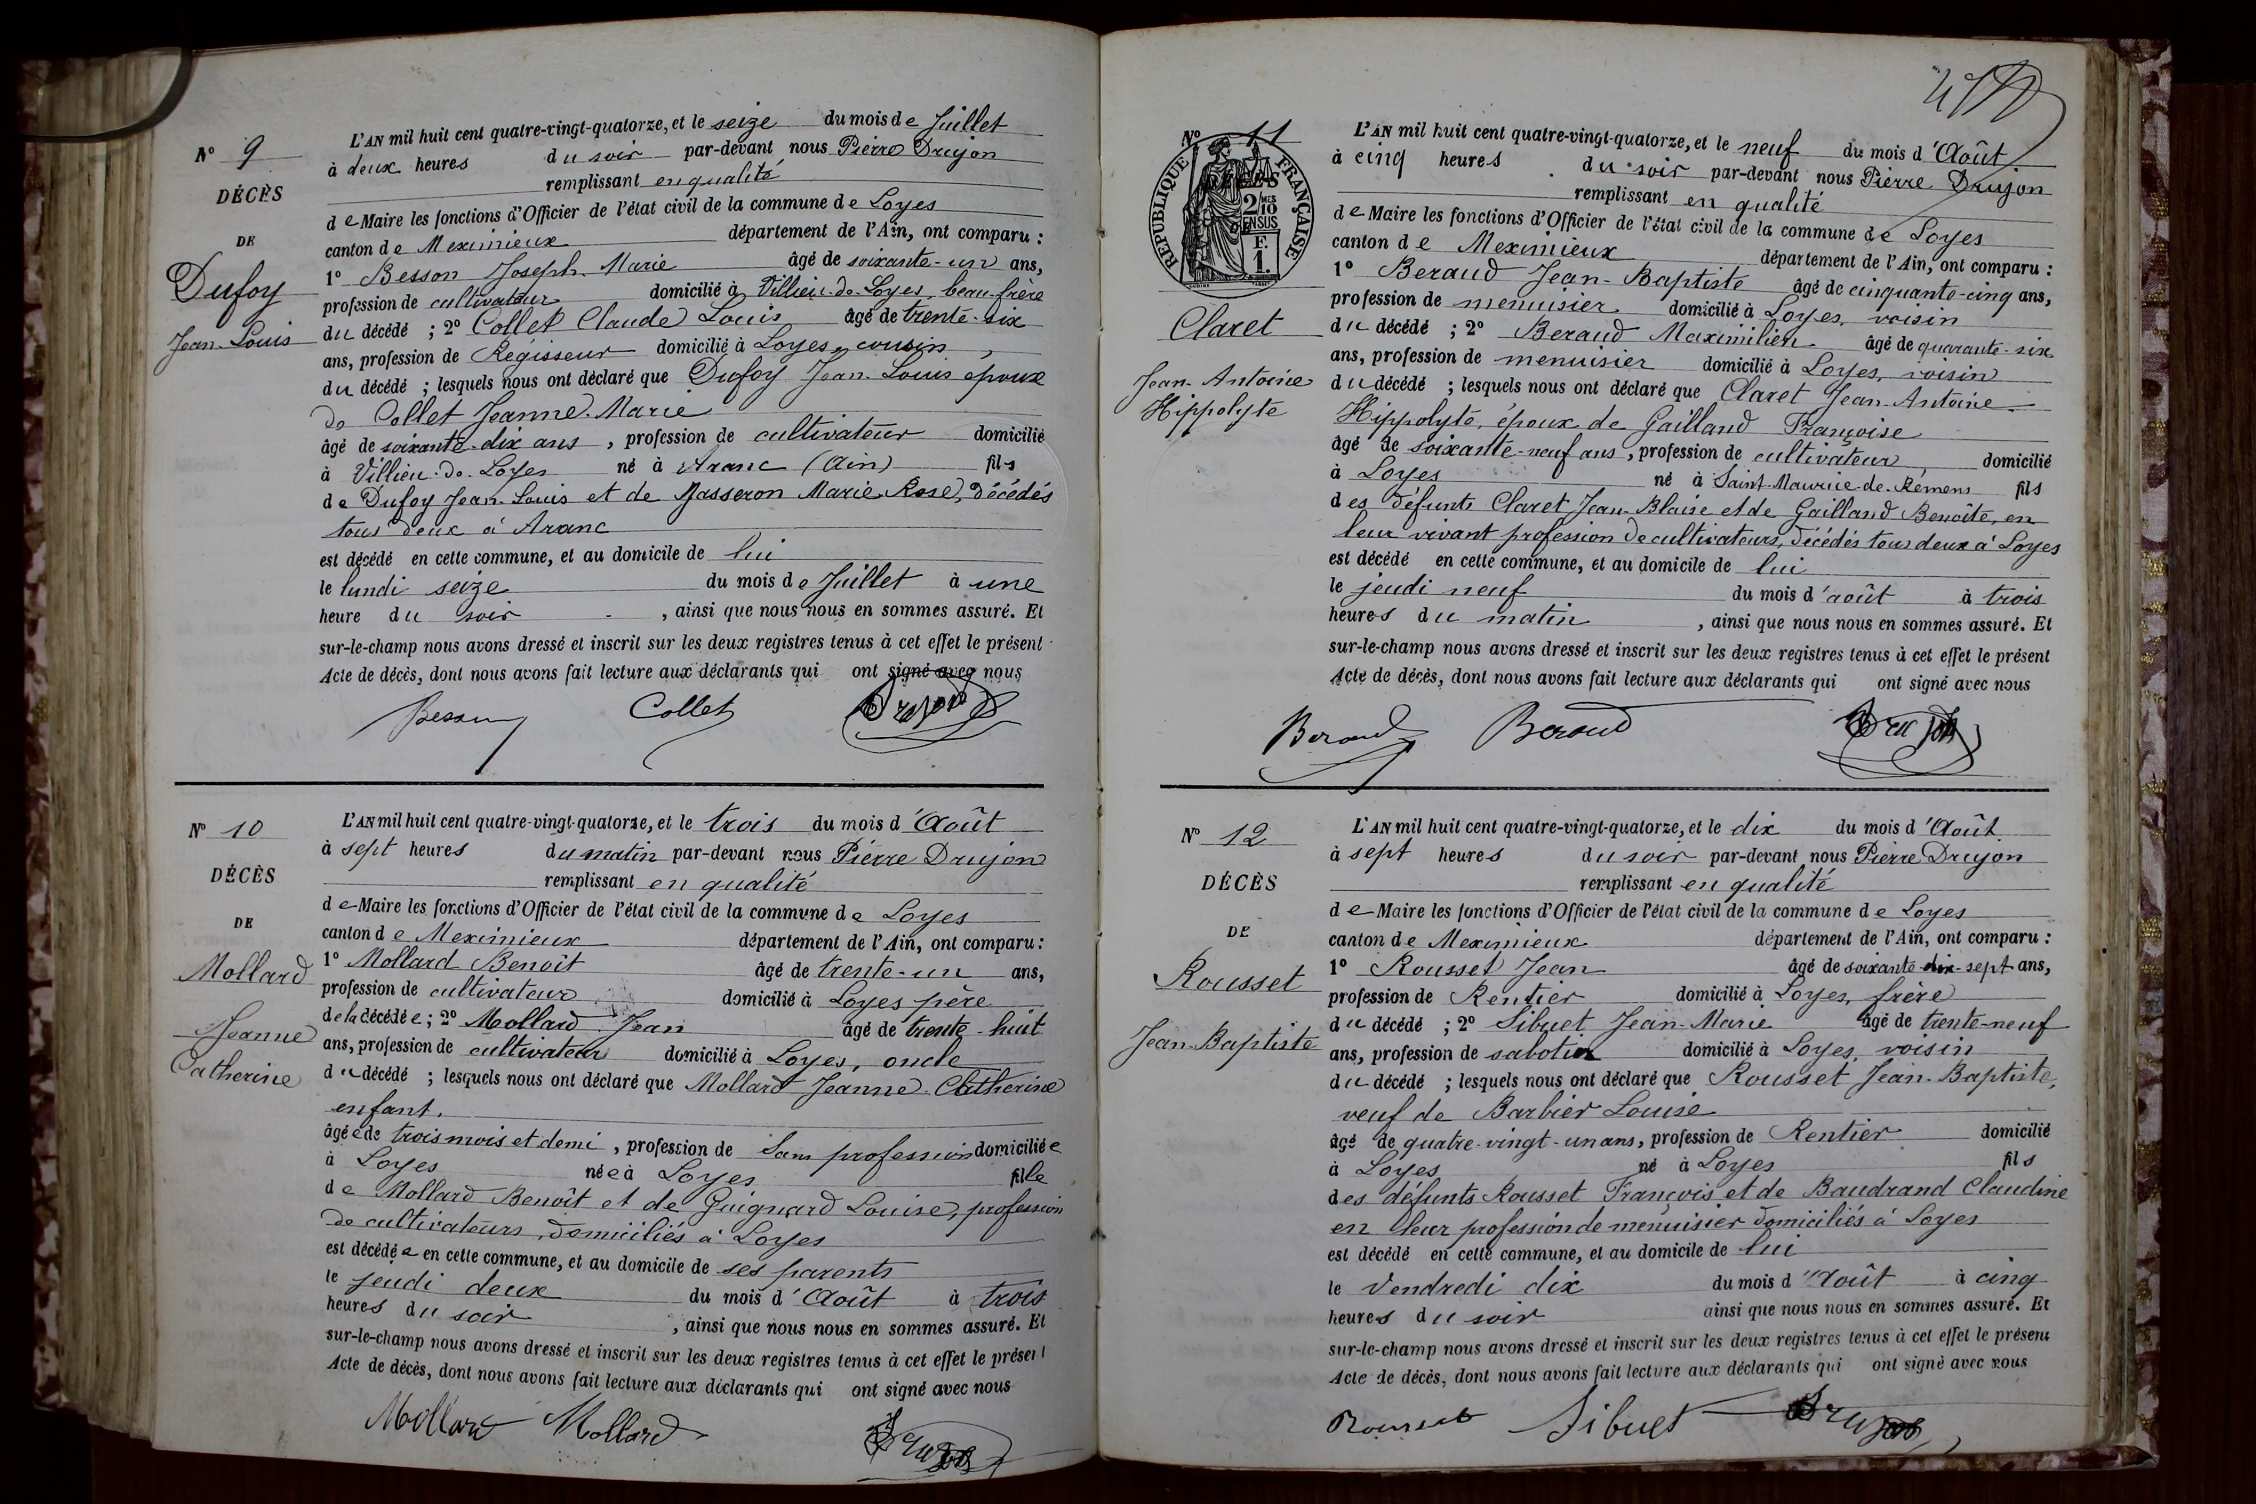 N° 9
DÉCÈS
DE
Dufoy
Jean-Louis
L'AN mil huit cent quatre-vingt-quatorze, et le seize du mois de Juillet
à deux heures du soir par-devant nous Pierre Drujon
remplissant en qualité
de Maire les fonctions d'Officier de l'état civil de la commune de Loyes
canton de Meximieux département de l'Ain, ont comparu :
1° Besson Joseph-Marie âgé de soixante-un ans,
profession de cultivateur domicilié à Villieu-de-Loyes, beau-frère
du décédé ; 2° Collet Claude Louis âgé de trente-six
ans, profession de Régisseur domicilié à Loyes, cousin
du décédé ; lesquels nous ont déclaré que Dufoy Jean-Louis époux
de Collet Jeanne-Marie
âgé de soixante-dix ans, profession de cultivateur domicilié
à Villieu-de-Loyes né à Aranc (Ain) fils
de Dufoy Jean-Louis et de Masseron Marie-Rose, décédés
tous deux à Aranc
est décédé en cette commune, et au domicile de lui
le lundi seize du mois de Juillet à une
heure du soir , ainsi que nous nous en sommes assuré. Et
sur-le-champ nous avons dressé et inscrit sur les deux registres tenus à cet effet le présent
Acte de décès, dont nous avons fait lecture aux déclarants qui ont signé avec nous
Besson Collet Drujon
N° 10
DÉCÈS
DE
Mollard
Jeanne
Catherine
L'AN mil huit cent quatre-vingt-quatorze, et le trois du mois d'Août
à sept heures du matin par-devant nous Pierre Drujon
remplissant en qualité
de Maire les fonctions d'Officier de l'état civil de la commune de Loyes
canton de Meximieux département de l'Ain, ont comparu :
1° Mollard Benoît âgé de trente-un ans,
profession de cultivateur domicilié à Loyes père
de la décédée ; 2° Mollard Jean âgé de trente-huit
ans, profession de cultivateur domicilié à Loyes, oncle
du décédé ; lesquels nous ont déclaré que Mollard Jeanne Catherine
enfant.
âgée de trois mois et demi, profession de Sans profession domiciliée
à Loyes née à Loyes fille
de Mollard Benoît et de Guignard Louise, profession
de cultivateurs, domiciliés à Loyes
est décédée en cette commune, et au domicile de ses parents
le jeudi deux du mois d'Août à trois
heures du soir , ainsi que nous nous en sommes assuré. Et
sur-le-champ nous avons dressé et inscrit sur les deux registres tenus à cet effet le présent
Acte de décès, dont nous avons fait lecture aux déclarants qui ont signé avec nous
Mollard Mollard Drujon
N° 11
RÉPUBLIQUE FRANÇAISE
2/10 MES
EN SUS
F.
1.
Claret
Jean-Antoine
Hippolyte
L'AN mil huit cent quatre-vingt-quatorze, et le neuf du mois d'Août
à cinq heures du soir par-devant nous Pierre Drujon
remplissant en qualité
de Maire les fonctions d'Officier de l'état civil de la commune de Loyes
canton de Meximieux département de l'Ain, ont comparu :
1° Beraud Jean-Baptiste âgé de cinquante-cinq ans,
profession de menuisier domicilié à Loyes, voisin
du décédé ; 2° Beraud Maximilien âgé de quarante-six
ans, profession de menuisier domicilié à Loyes, voisin
du décédé ; lesquels nous ont déclaré que Claret Jean-Antoine-
Hippolyte, époux de Gailland Françoise
âgé de soixante-neuf ans, profession de cultivateur, domicilié
à Loyes né à Saint-Maurice-de-Rémens fils
des défunts Claret Jean-Blaise et de Gailland Benoîte, en
leur vivant profession de cultivateurs, décédés tous deux à Loyes
est décédé en cette commune, et au domicile de lui
le jeudi neuf du mois d'août à trois
heures du matin , ainsi que nous nous en sommes assuré. Et
sur-le-champ nous avons dressé et inscrit sur les deux registres tenus à cet effet le présent
Acte de décès, dont nous avons fait lecture aux déclarants qui ont signé avec nous
Beraud Beraud Drujon
N° 12
DÉCÈS
DE
Rousset
Jean-Baptiste
L'AN mil huit cent quatre-vingt-quatorze, et le dix du mois d'Août
à sept heures du soir par-devant nous Pierre Drujon
remplissant en qualité
de Maire les fonctions d'Officier de l'état civil de la commune de Loyes
canton de Meximieux département de l'Ain, ont comparu :
1° Rousset Jean âgé de soixante-dix-sept ans,
profession de Rentier domicilié à Loyes, frère
du décédé ; 2° Sibuet Jean-Marie âgé de trente-neuf
ans, profession de sabotier domicilié à Loyes, voisin
du décédé ; lesquels nous ont déclaré que Rousset Jean-Baptiste,
veuf de Barbier Louise
âgé de quatre-vingt-un ans, profession de Rentier domicilié
à Loyes né à Loyes fils
des défunts Rousset François et de Baudrand Claudine
en leur profession de menuisier domiciliés à Loyes
est décédé en cette commune, et au domicile de lui
le Vendredi dix du mois d'Août à cinq
heures du soir ainsi que nous nous en sommes assuré. Et
sur-le-champ nous avons dressé et inscrit sur les deux registres tenus à cet effet le présent
Acte de décès, dont nous avons fait lecture aux déclarants qui ont signé avec nous
Rousset Sibuet Drujon